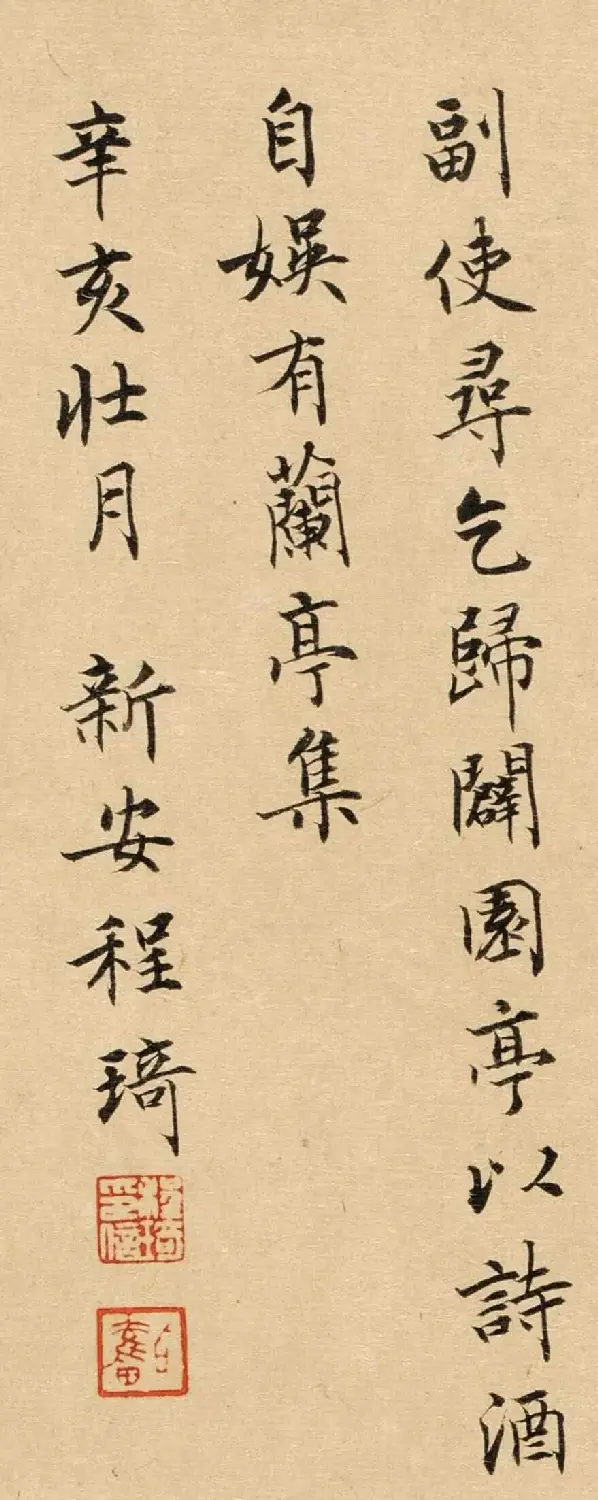 副使尋乞歸闢園亭以詩酒
自娛有蘭亭集
辛亥壯月 新安程琦
程琦印信